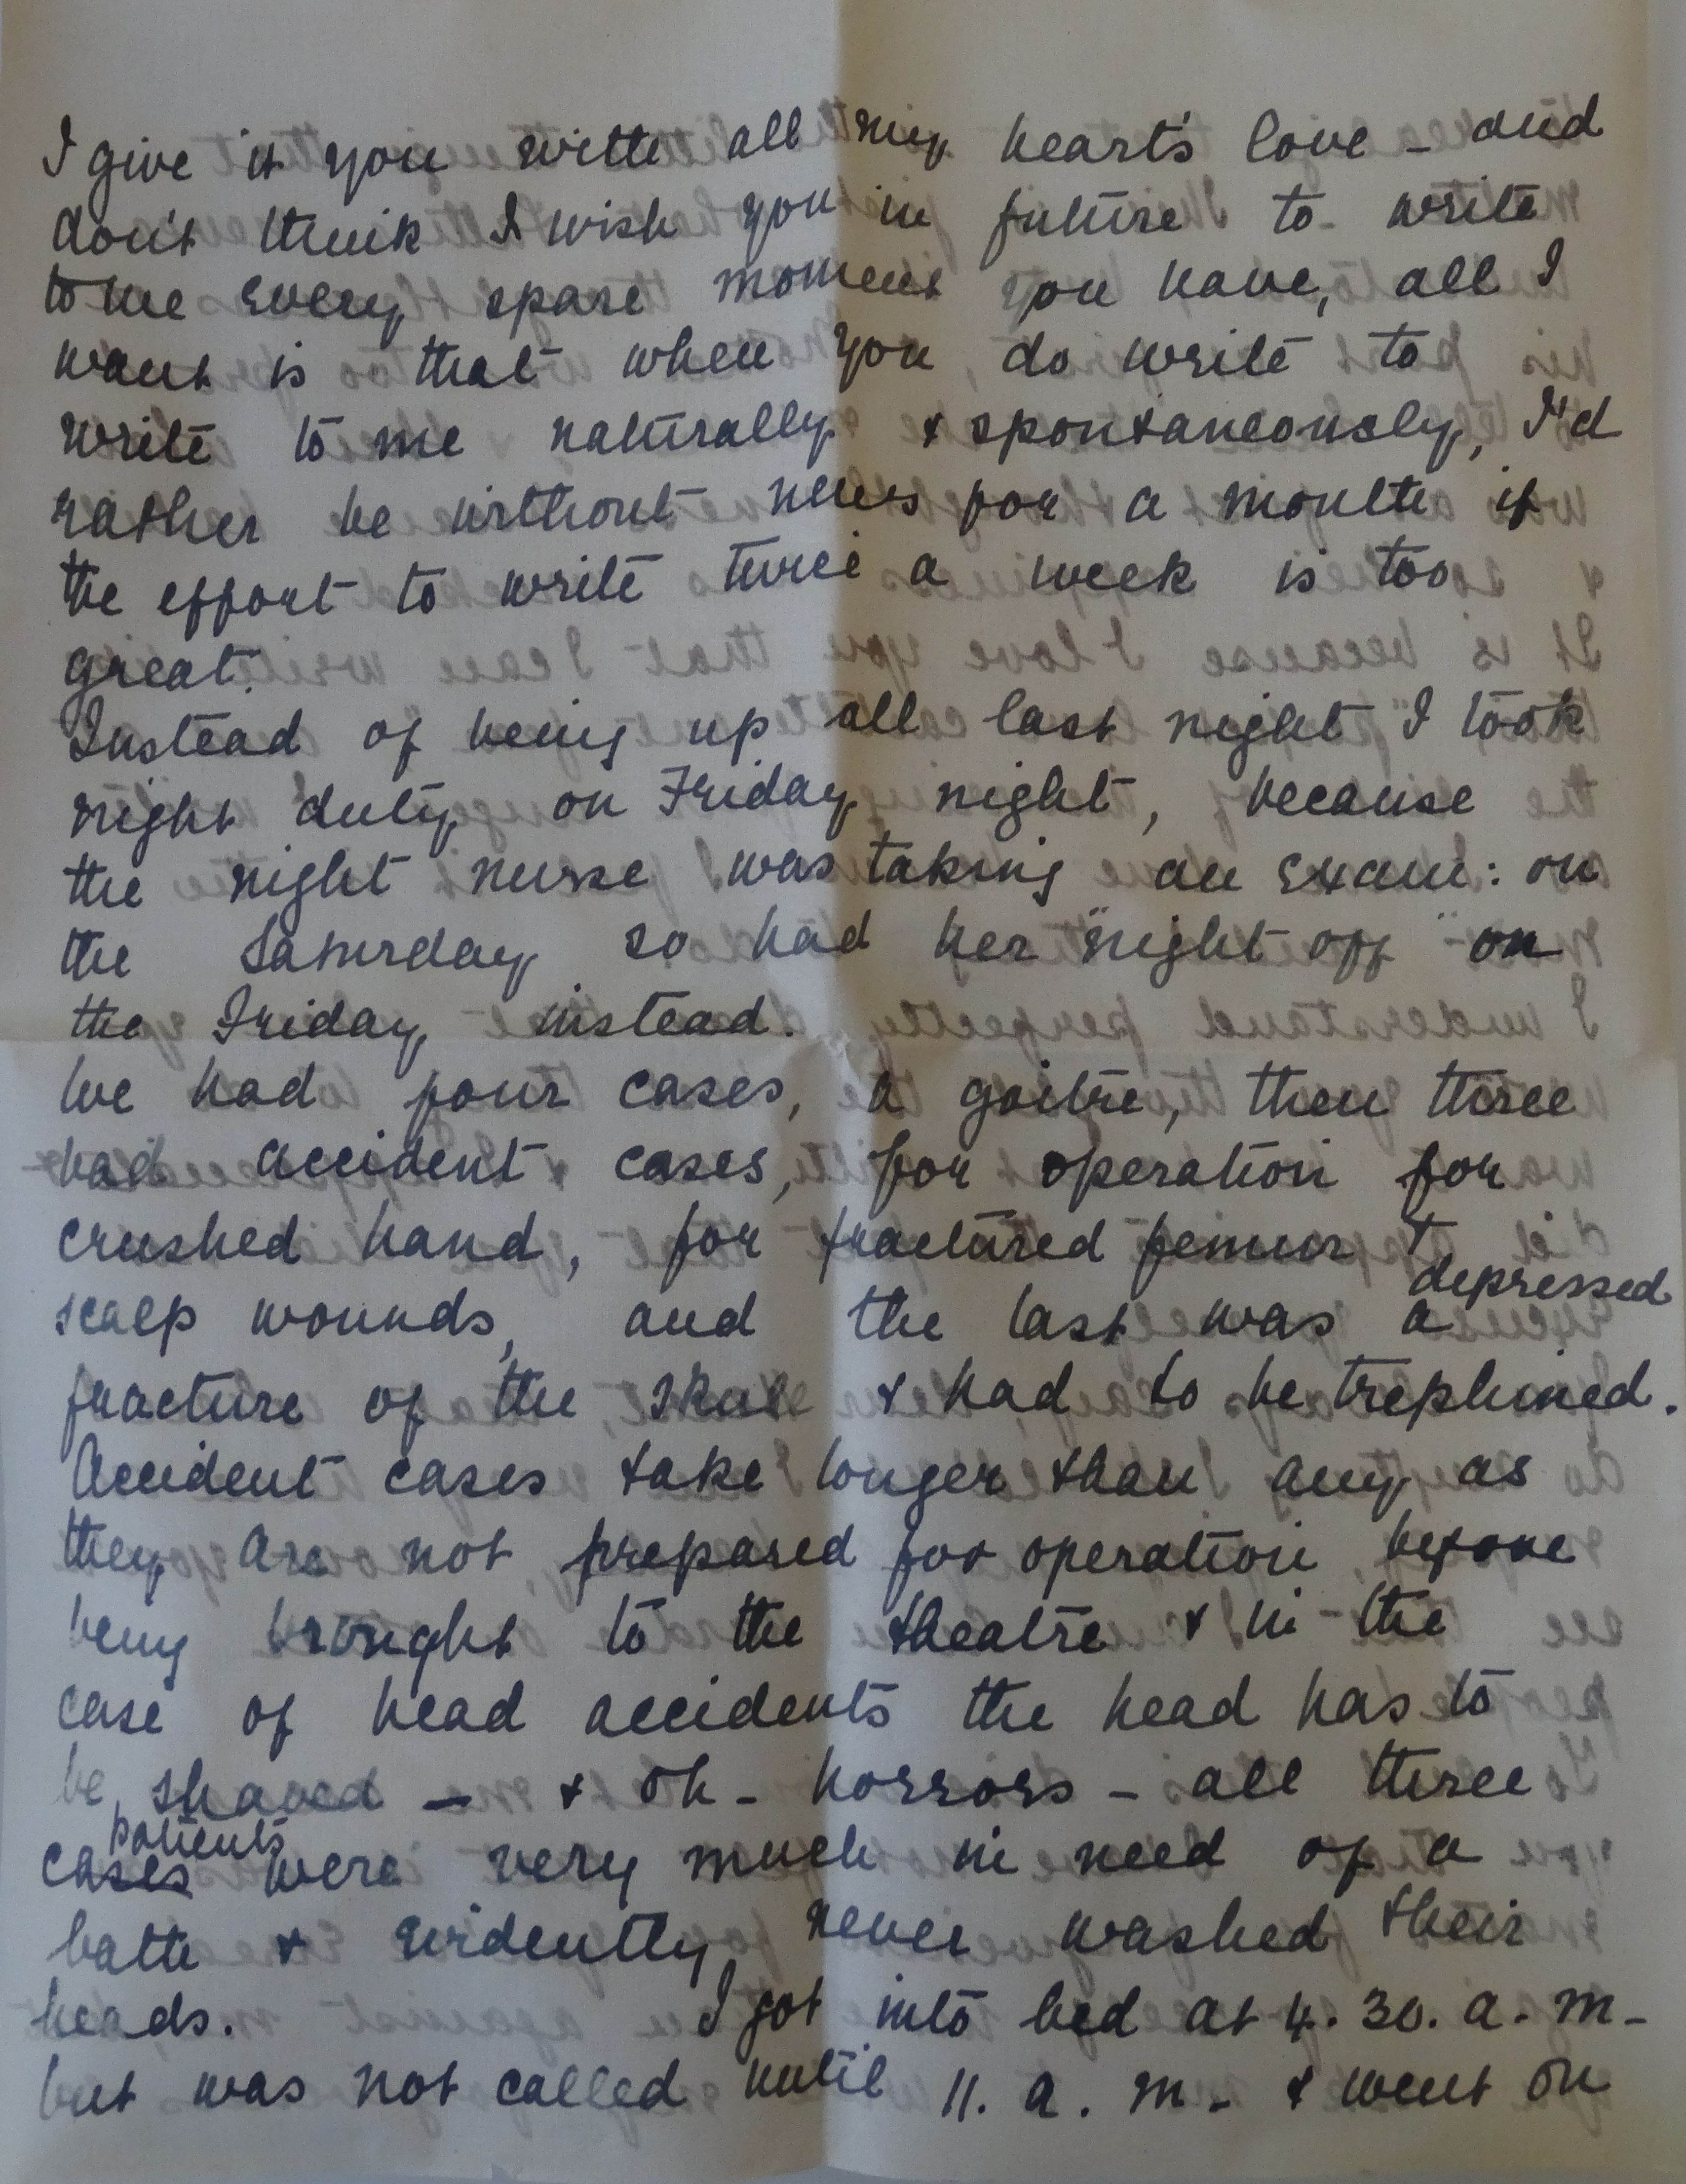 I give it you with all my heart's love - and
don't think I wish you in future to write
to me every spare moment you have, all I
want is that when you do write to
write to me naturally & spontaneously, I'd
rather be without news for a month if
the effort to write twice a week is too
great.
Instead of being up all last night I took
night duty on Friday night, because
the night nurse was taking an exam: on
the Saturday so had her "night off" on
the Friday instead.
We had four cases, a goitre, then three
bad accident cases, for operation for
crushed hand, for fractured femur +
depressed
scalp wounds, and the last was a
fracture of the skull & had to be trephined.
Accident cases take longer than any as
they are not prepared for operation before
being brought to the theatre & in the
case of head accidents the head has to
be shaved - & oh - horrors - all three
patients
cases were very much in need of a
bath & evidently never washed their
heads. I got into bed at 4.30. a.m-
but was not called until 11. a.m- & went on